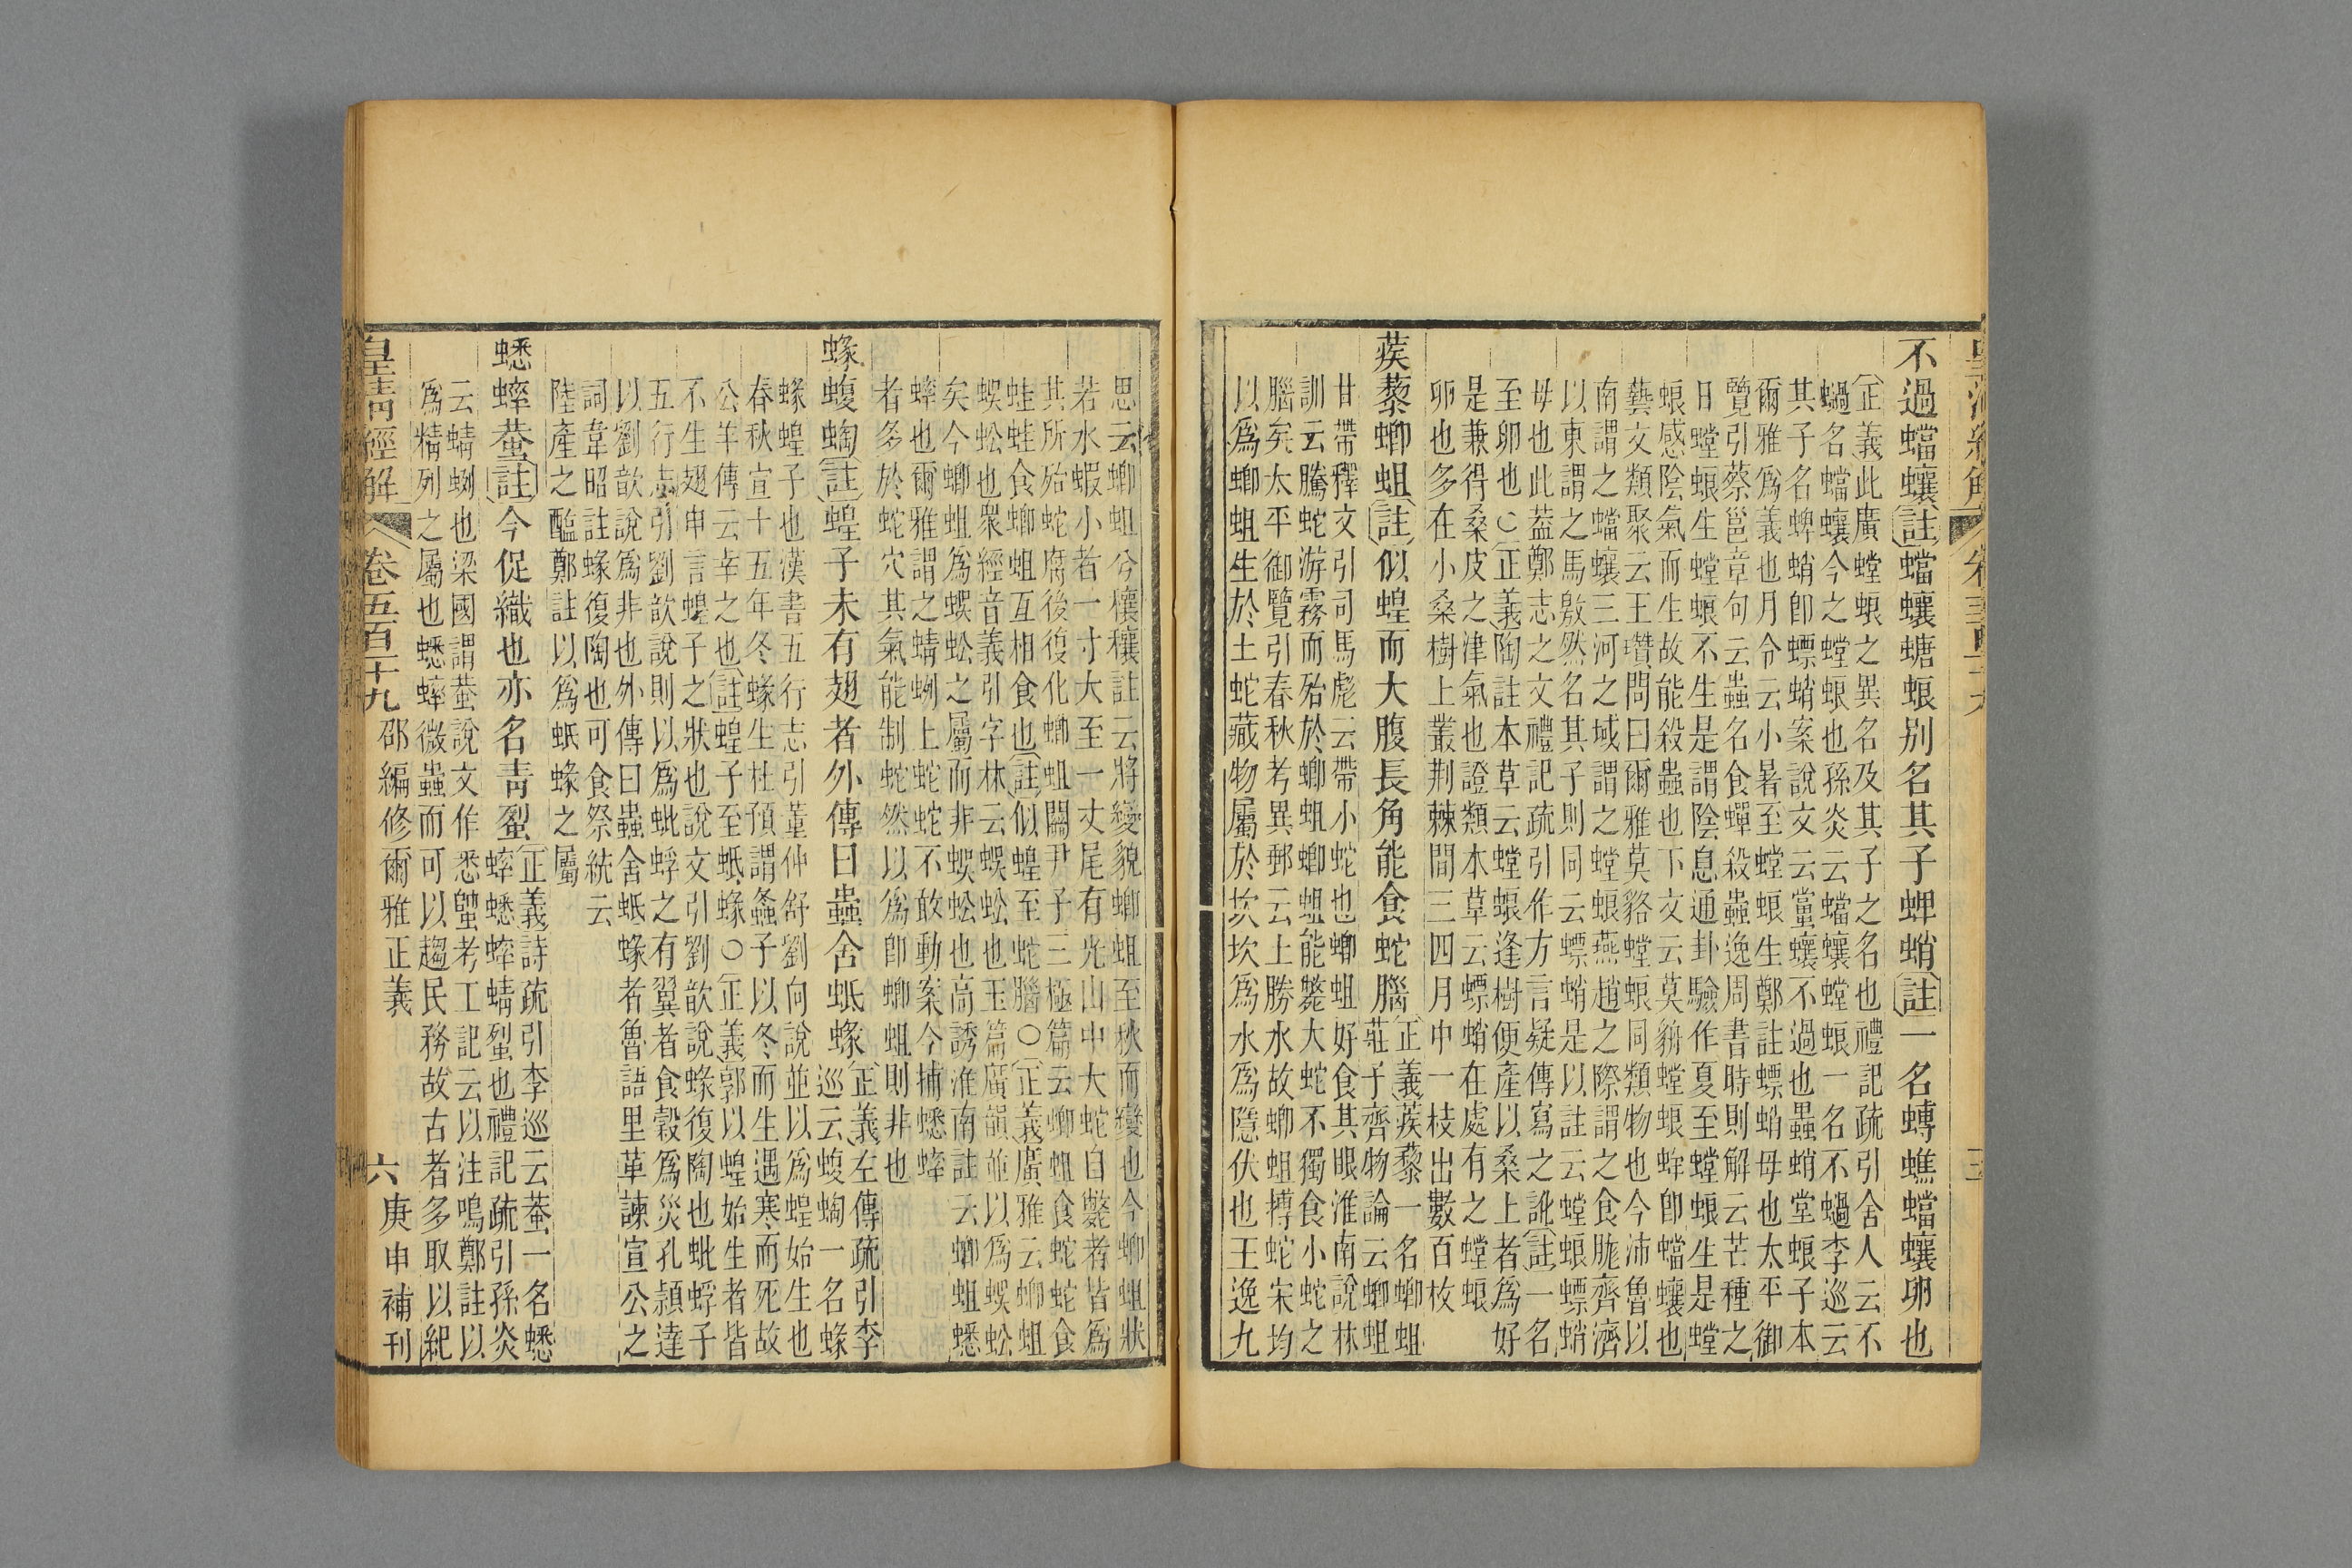 不過蟷蠰註蟷蠰螗蜋别名其子蜱蛸註一名䗚蟭蟷蠰卵也
正義此廣螳蜋之異名及其子之名也禮記疏引舍人云不
蝎名蟷蠰今之螳蜋也孫炎云蟷蠰螳蜋一名不蝎李巡云
其子名蜱蛸卽螵蛸案說文云蟷蠰不過也蟲蛸堂蜋子本
爾雅爲義也月令云小暑至螳蜋生鄭註螵蛸母也太平御
覽引蔡邕章句云蟲名食蟬殺蟲逸周書時則解云芒種之
日螳蜋生螳蜋不生是謂陰息通卦驗作夏至螳蜋生是螳
蜋感陰氣而生故能殺蟲也下文云莫貈螳蜋蛑卽蟷蠰也
藝文類聚云王瓚問曰爾雅莫貉螳蜋同類物也今沛魯以
南謂之蟷蠰三河之域謂之螳蜋燕趙之際謂之食肬齊濟
以東謂之馬敫然名其子則同云螵蛸是以註云螳蜋螵蛸
母也此葢鄭志之文禮記疏引作方言疑傳寫之訛註一名
至卵也○正義陶註本草云螳蜋逢樹便產以桑上者爲好
是兼得桑皮之津氣也證類本草云螵蛸在處有之螳蜋
卵也多在小桑樹上叢荆棘間三四月中一枝出數百枚
蒺藜蝍蛆註似蝗而大腹長角能食蛇腦正義蒺藜一名蝍蛆
莊子齊物論云蝍蛆
甘帶釋文引司馬彪云帶小蛇也蝍蛆好食其眼淮南說林
訓云騰蛇游霧而殆於蝍蛆蝍蛆能斃大蛇不獨食小蛇之
腦矣太平御覽引春秋考異郵云土勝水故蝍蛆搏蛇宋均
以爲蝍蛆生於土蛇藏物屬於坎坎爲水水爲隱伏也王逸九
思云蝍蛆兮穰穰註云將變貌蝍蛆至秋而變也今蝍蛆狀
若水蝦小者一寸大至一丈尾有光山中大蛇自斃者皆爲
其所殆蛇腐後復化蝍蛆關尹子三極篇云蝍蛆食蛇蛇食
蛙蛙食蝍蛆互相食也註似蝗至蛇腦○正義廣雅云蝍蛆
蜈蚣也衆經音義引字林云蜈蚣也玉篇廣韻並以爲蜈蚣
矣今蝍蛆爲蜈蚣之屬而非蜈蚣也高誘淮南註云蝍蛆蟋
蟀也爾雅謂之蜻蛚上蛇蛇不敢動案今捕蟋蟀
者多於蛇穴其氣能制蛇然以爲卽蝍蛆則非也
蝝蝮蜪註蝗子未有翅者外傳曰蟲舍蚳蝝正義左傳疏引李
巡云蝮蜪一名蝝
蝝蝗子也漢書五行志引董仲舒劉向說並以爲蝗始生也
春秋宣十五年冬蝝生杜預謂螽子以冬而生遇寒而死故
公羊傳云幸之也註蝗子至蚳蝝○正義郭以蝗始生者皆
不生翅申言蝗子之狀也說文引劉歆說蝝復陶也蚍蜉子
五行志引劉歆說則以爲蚍蜉之有翼者食穀爲災孔頴達
以劉歆說爲非也外傳曰蟲舍蚳蝝者魯語里革諫宣公之
詞韋昭註蝝復陶也可食祭統云
陸產之醢鄭註以爲蚳蝝之屬
蟋蟀蛬註今促織也亦名靑𧊿正義詩疏引李巡云蛬一名蟋
蟀蟋蟀蜻𧊿也禮記疏引孫炎
云蜻蛚也梁國謂蛬說文作悉𧍓考工記云以注鳴鄭註以
爲精列之屬也蟋蟀微蟲而可以趨民務故古者多取以紀
皇淸經解 卷五百十九 邵編修爾雅正義 六 庚申補刊